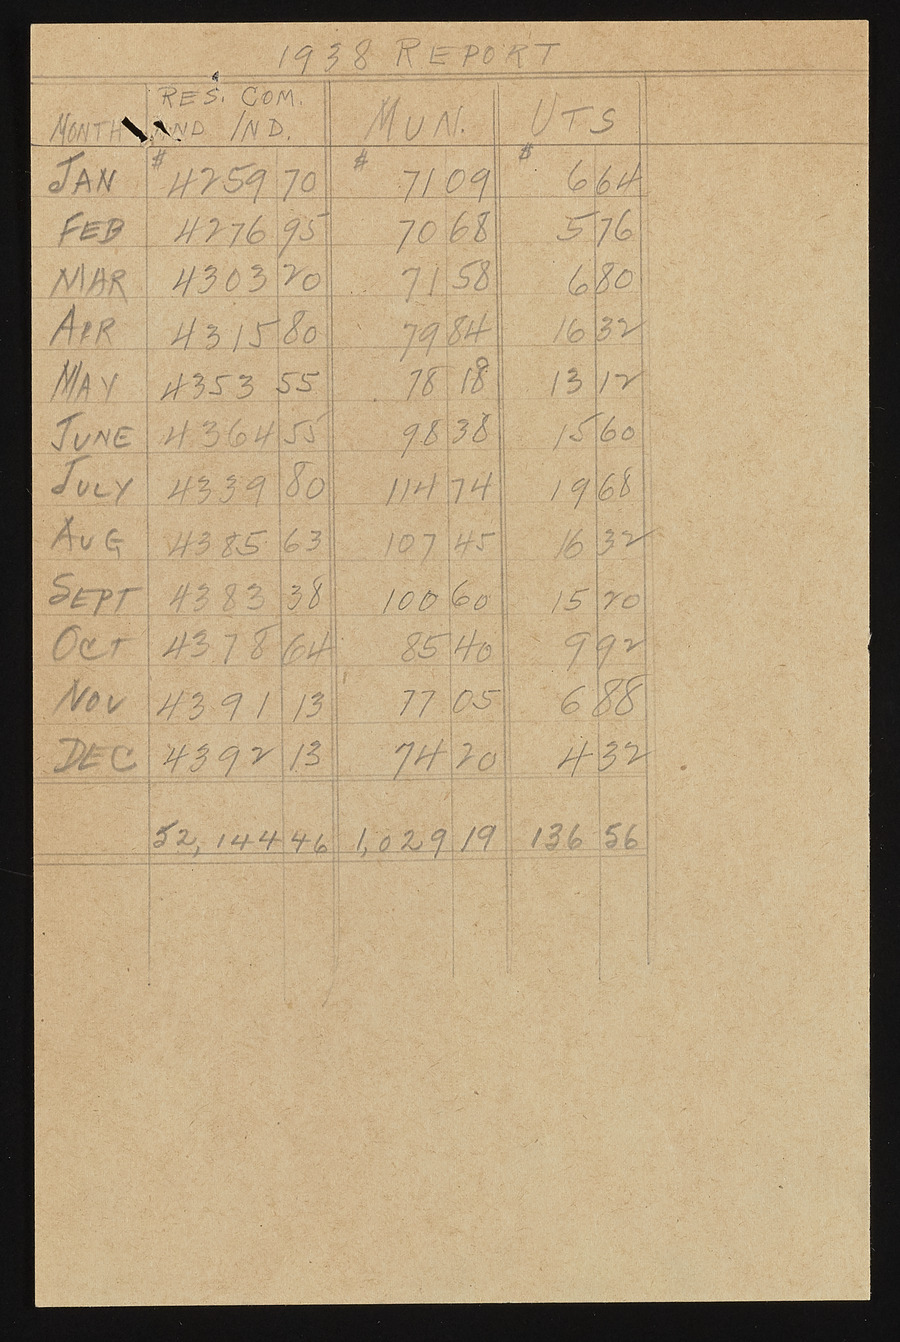 1938 REPORT
RES. COM.
MONTH AND IND. MUN. UTS
JAN $ 4259 70 $ 71 09 $ 6 64
FEB 4276 95 70 68 5 76
MAR 4303 20 71 58 6 80
APR 4315 80 79 84 16 32
MAY 4353 55 78 18 13 12
JUNE 4364 55 98 38 15 60
JULY 4339 80 114 74 19 68
AUG 4385 63 107 45 16 32
SEPT 4383 38 100 60 15 20
OCT 4378 64 85 40 9 92
NOV 4391 13 77 05 6 88
DEC 4392 13 74 20 4 32
52,144 46 1,029 19 136 56